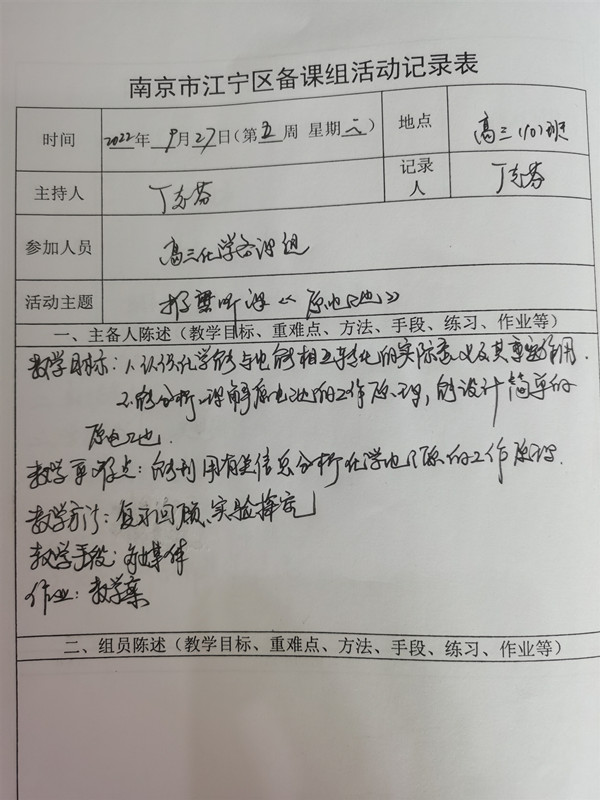 南京市江宁区备课组活动记录表
时间 2022年 9月27日(第五周 星期二) 地点 高三(10)班
主持人 丁冬芬 记录人 丁冬芬
参加人员 高三化学备课组
活动主题 听课《原电池》
一、主备人陈述(教学目标、重难点、方法、手段、练习、作业等)
教学目标:1.认识化学能与电能相互转化的实际意义及其重要作用.
2.能分析、理解原电池的工作原理,能设计简单的
原电池.
教学重难点:能利用有关信息分析化学电源的工作原理.
教学方法:复习回顾、实验探究
教学手段:多媒体
作业:教学案
二、组员陈述(教学目标、重难点、方法、手段、练习、作业等)